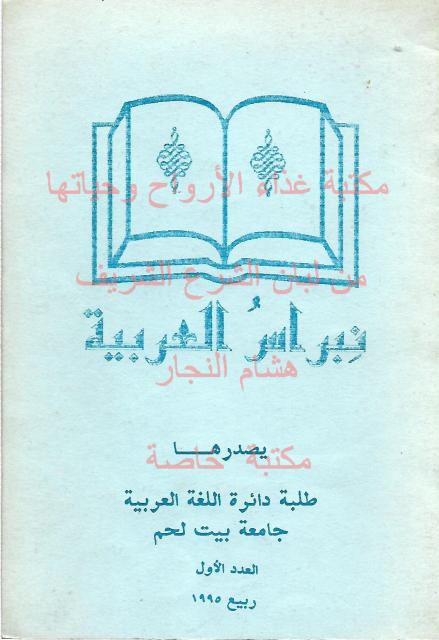 مكتبة غذاء الأرواح وحياتها
من لبان الشرع الشريف
نبراسُ العربية
هشام النجار
يصدرهـــا
مكتبة خاصة
طلبة دائرة اللغة العربية
جامعة بيت لحم
العدد الأول
ربيع ١٩٩٥